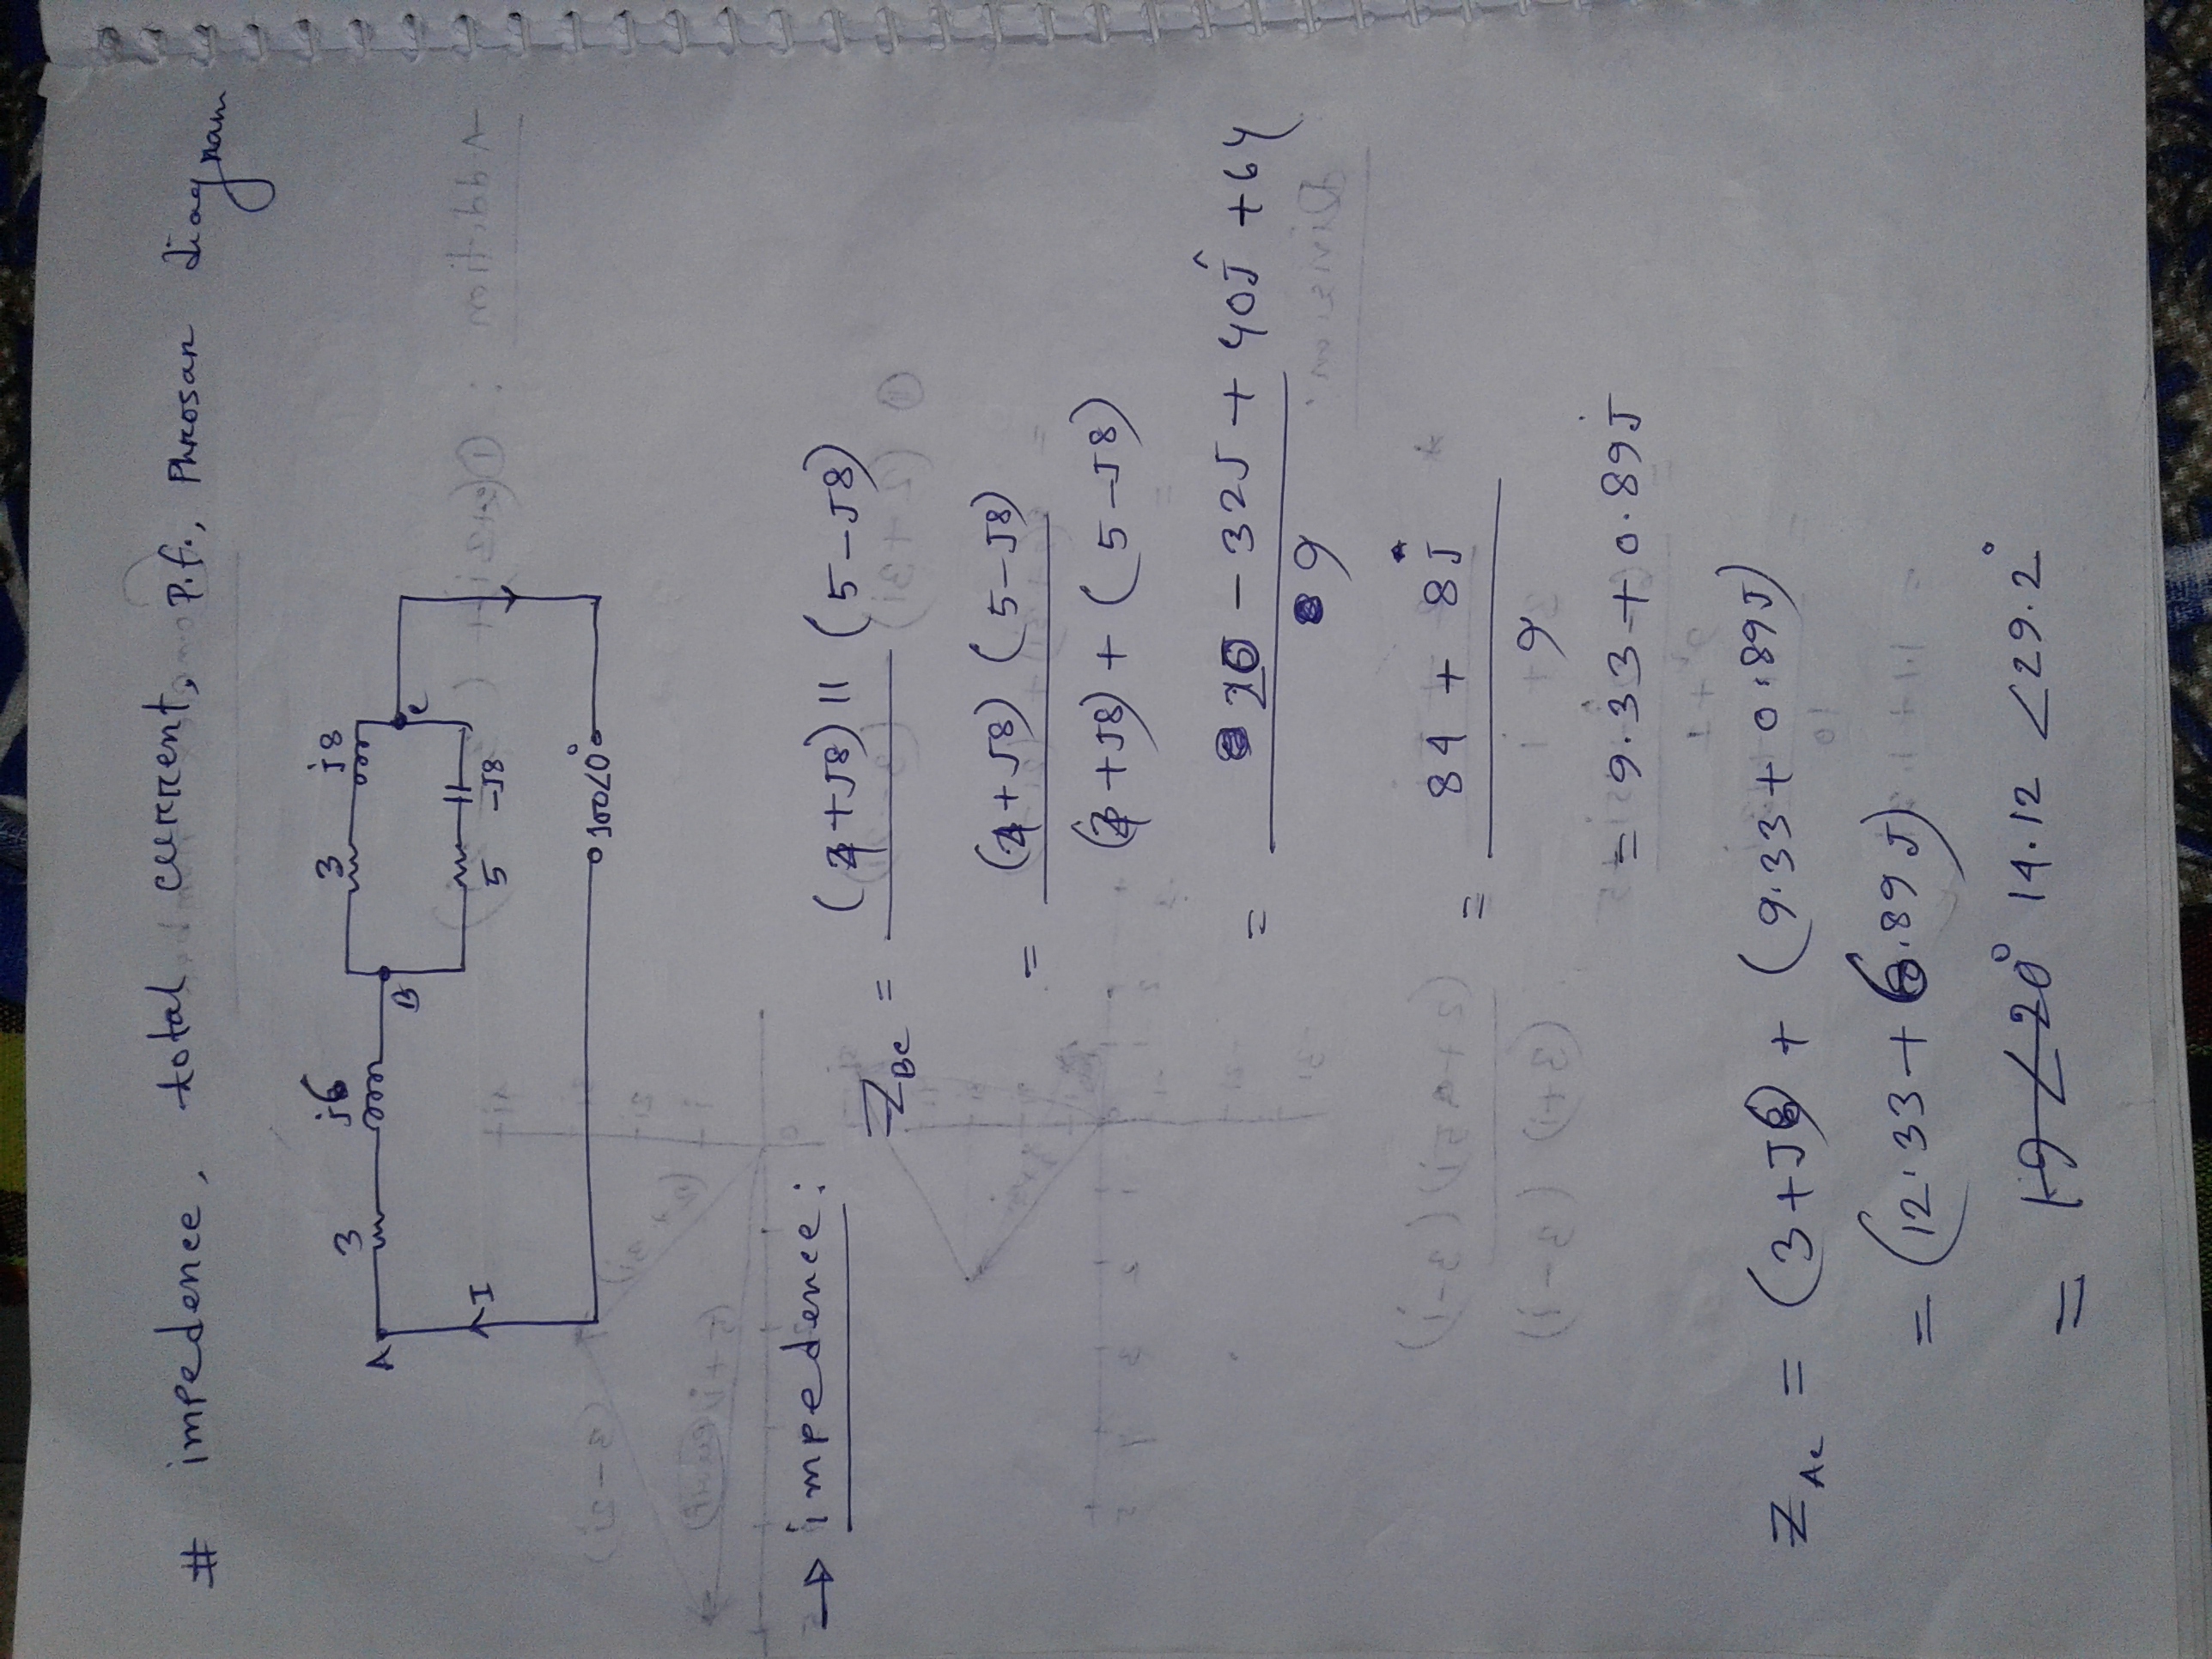 # impedence, total current, P.f., Phrosar diagram
3 j6 3 j8
A B c
I 5 -J8
100∠0°
→ impedence:
Z_BC = (4+J8) || (5-J8)
= (4+J8) (5-J8)
(4+J8) + (5-J8)
= 20 - 32J + 40J + 64
9
= 84 + 8J
9
= 9.33 + 0.89J
Z_AC = (3+J6) + (9.33 + 0.89J)
= (12.33 + 6.89J)
= 19 ∠20° 14.12 ∠29.2°